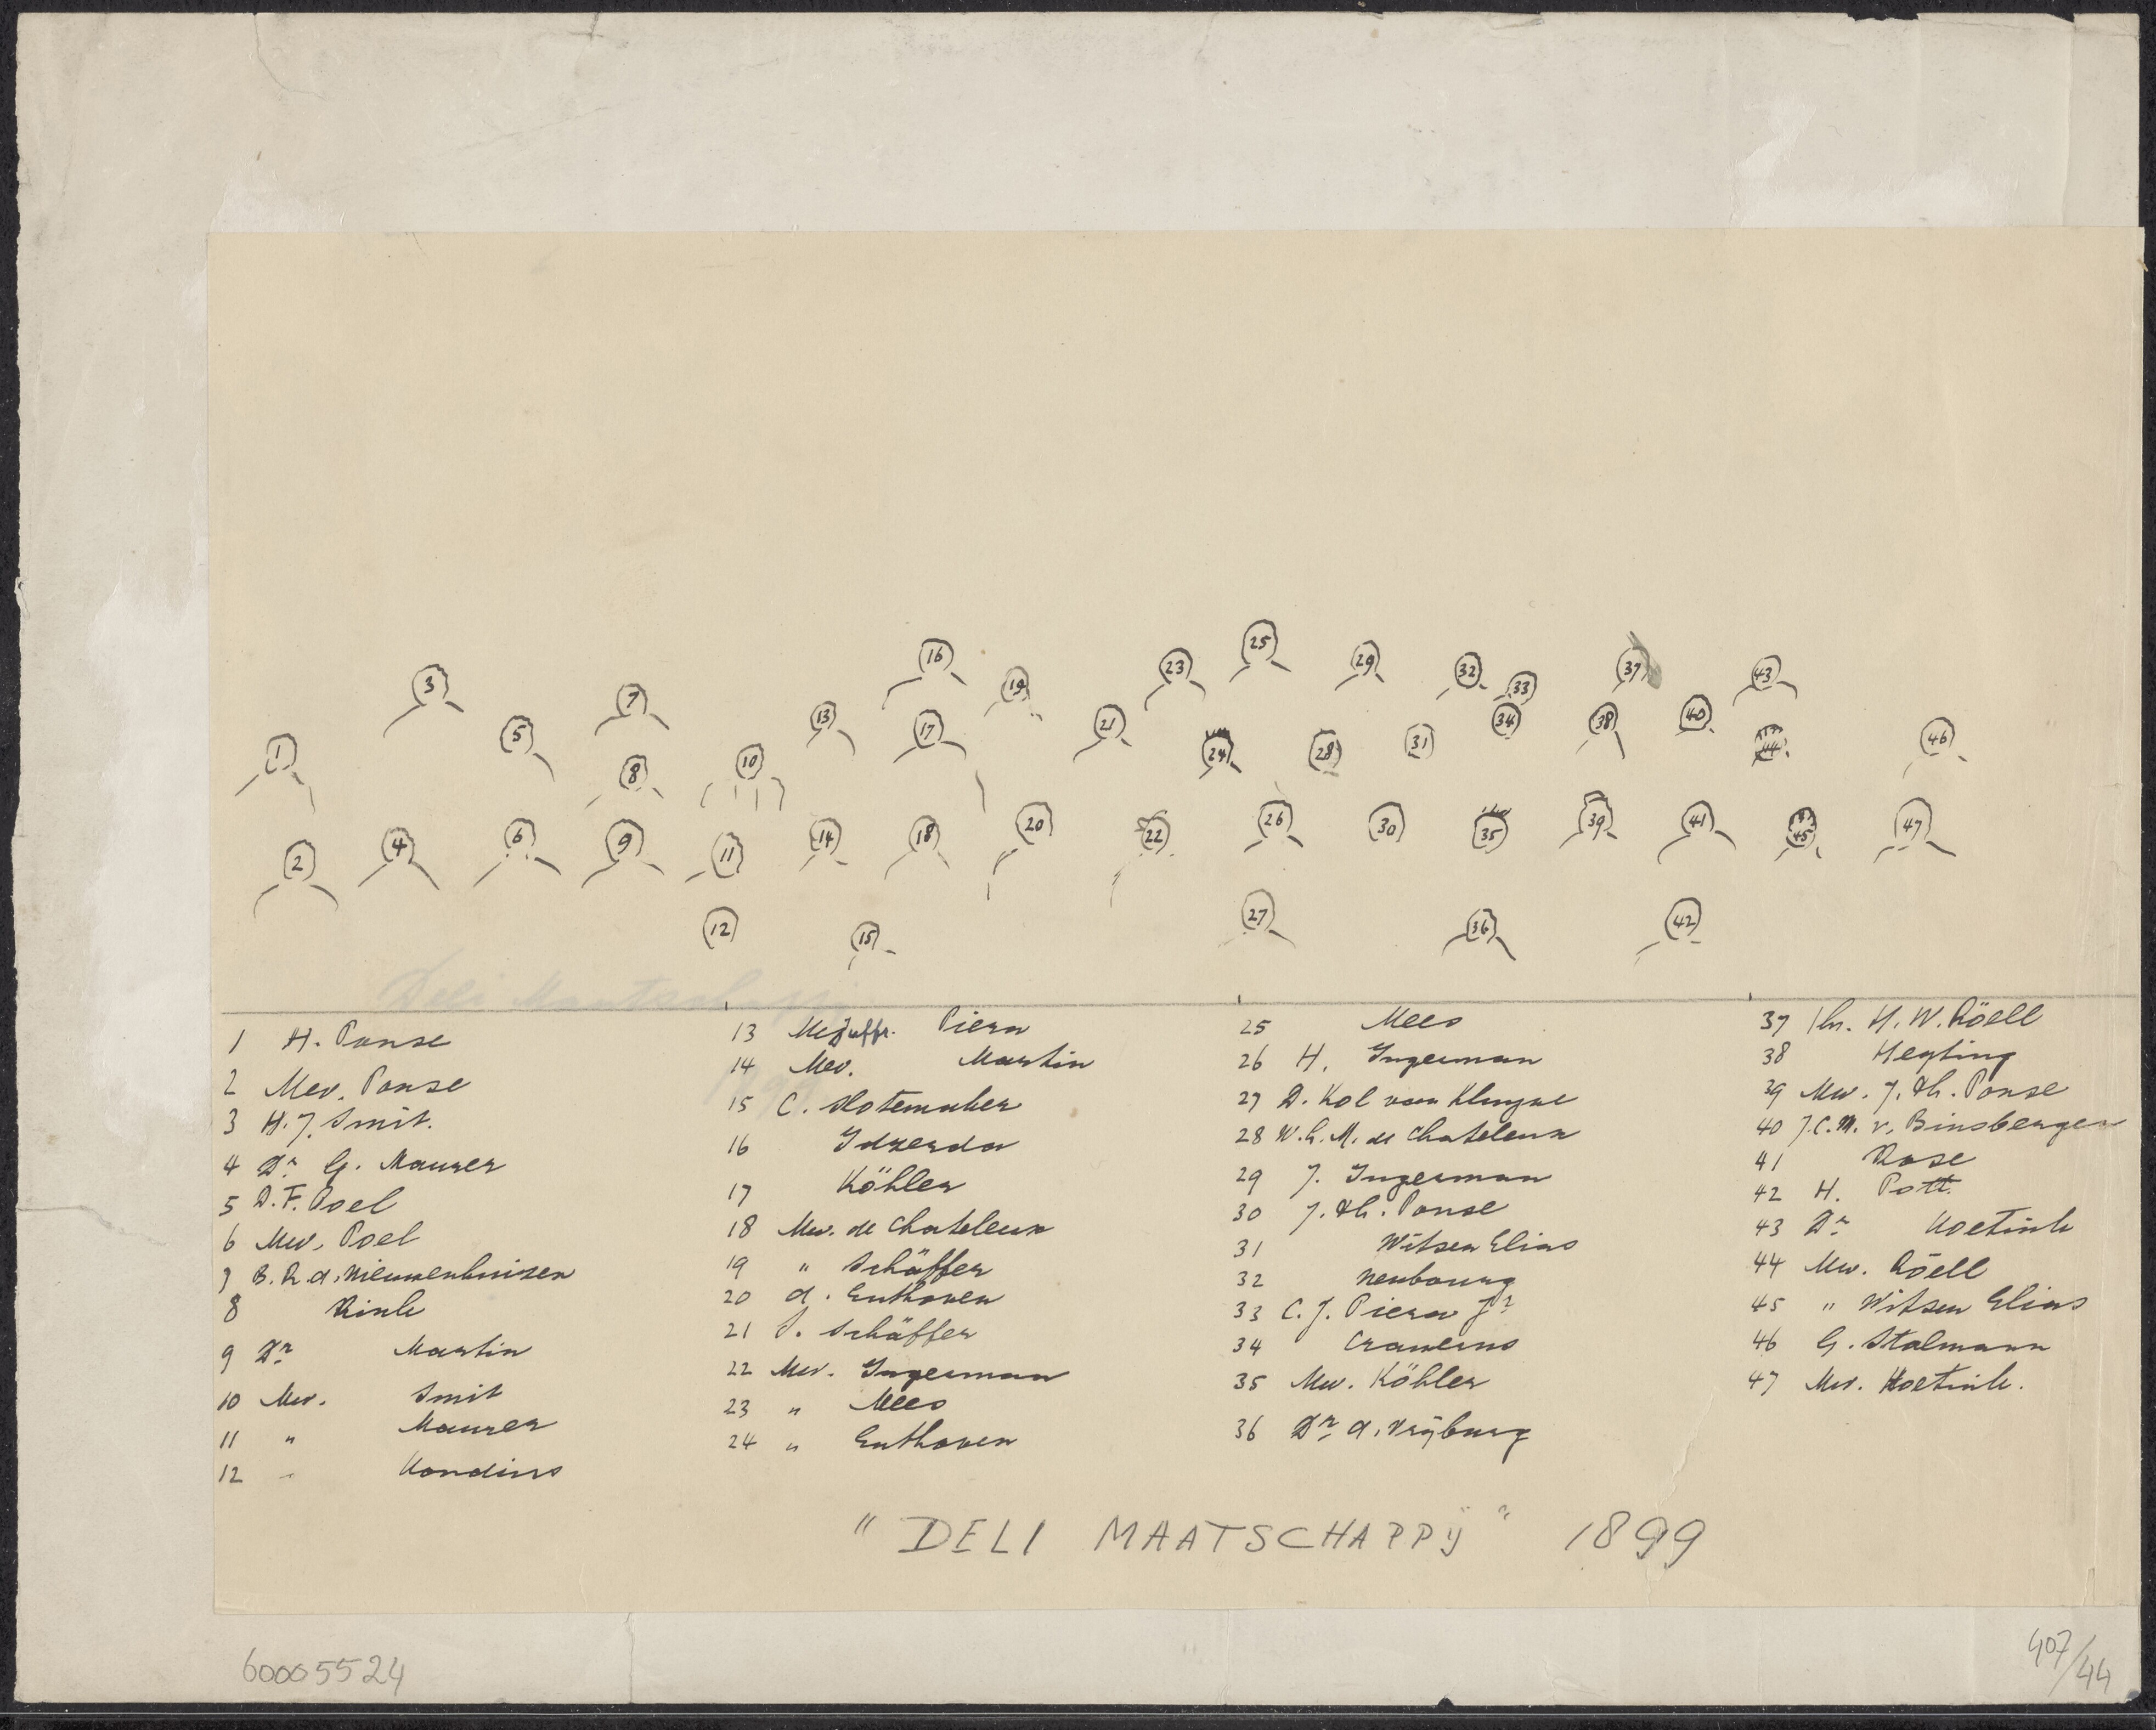 3
7
16
19
23
25
29
32
33
37
43
1
5
8
10
13
17
21
24
28
31
34
38
40
44
46
2
4
6
9
11
14
18
20
22
26
30
35
39
41
45
47
12
15
27
36
42
Deli Maatschappij
1 H. Ponse
2 Mev. Ponse
3 H. J. Smit.
4 Dr G. Maurer
5 D. F. Poel
6 Mev. Poel
7 B. R. d. Nieuwenhuizen
8 Rink
9 Dr Martin
10 Mev. Smit
11 " Maurer
12 "
13 Mejuffr. Piera
14 Mev. Martin
15 C. Slotemaker
16 Idzerda
17 Köhler
18 Mev. de Chateleux
19 " Schäffer
20 A. Enthoven
21 S. Schäffer
22 Mev. Ingerman
23 " Mees
24 " Enthoven
25 Mees
26 H. Ingerman
27 D. Kol van
28 W. G. M. de Chateleux
29 J. Ingerman
30 J. Th. Ponse
31 Witsen Elias
32 Neubourg
33 C. J. Piera Jr
34 Cramerus
35 Mev. Köhler
36 Dr A. Vrijburg
37 Jhr. H. W. Röell
38 Heyting
39 Mev. J. Th. Ponse
40 J. C. M. v. Binsbergen
41 Rose
42 H. Pott
43 Dr Hoetink
44 Mev. Röell
45 " Witsen Elias
46 G. Stalmann
47 Mev. Hoetink.
"DELI MAATSCHAPPIJ" 1899
60005524
407/44